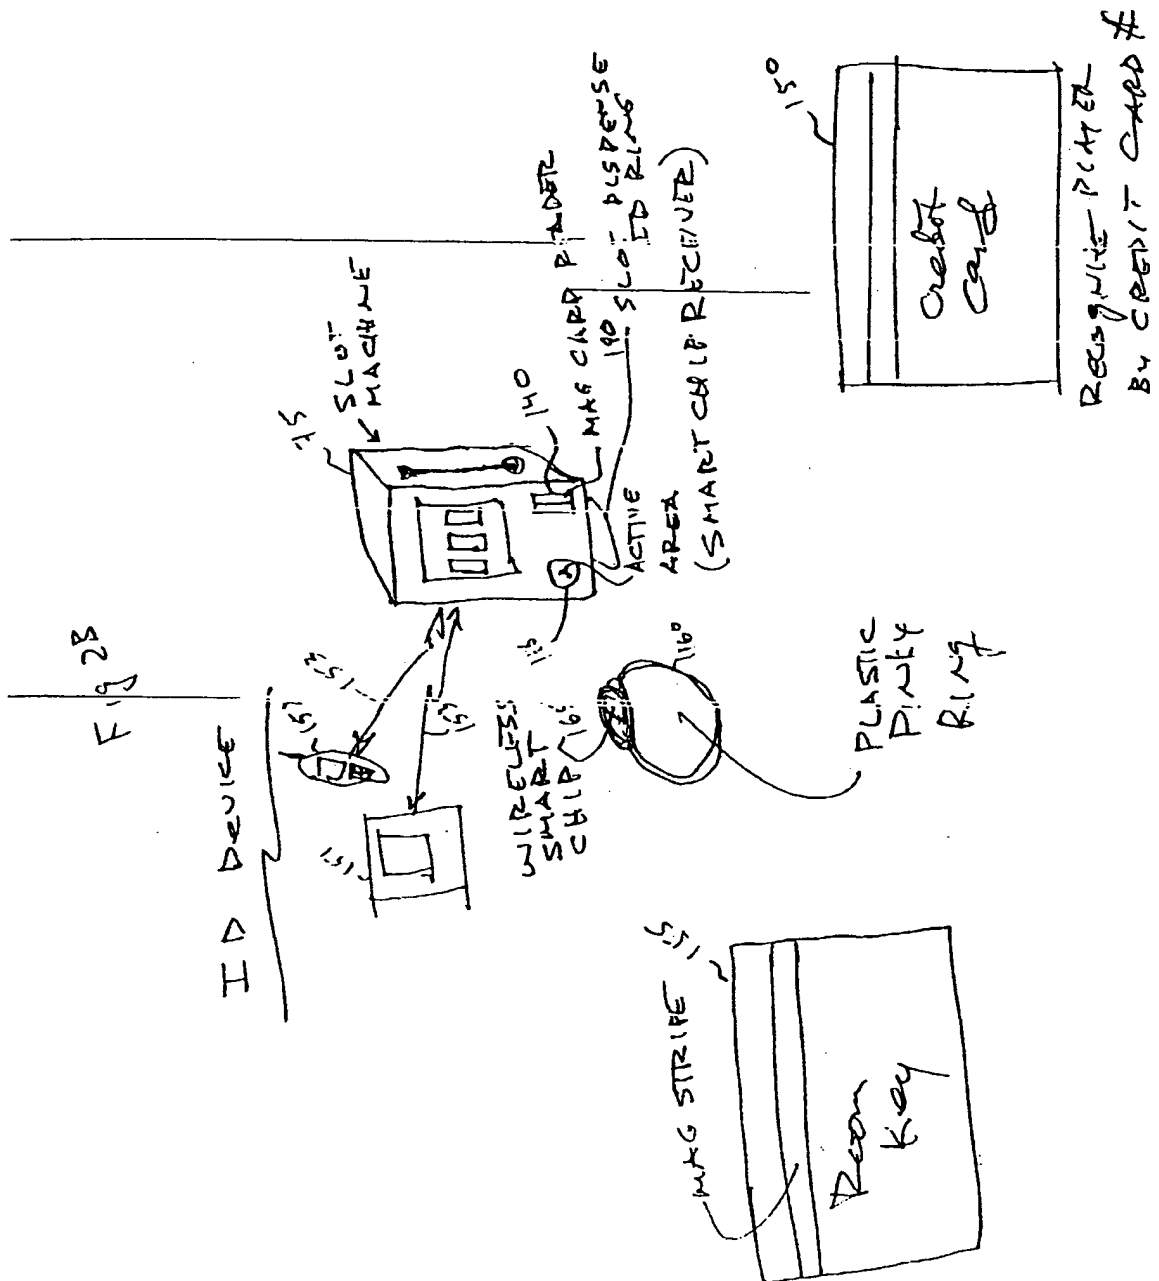 Fig 2B
ID DEVICE
151
153
151
157
75
SLOT
MACHINE
140
MAG CARD READER
190
SLOT DISPENSE
ID RING
115
ACTIVE
AREA
(SMART CHIP RECEIVER)
WIRELESS
SMART
CHIP 165
160
PLASTIC
PINKY
RING
MAG STRIPE
155
Room
Key
150
Credit
Card
RECOGNIZE PLAYER
BY CREDIT CARD #